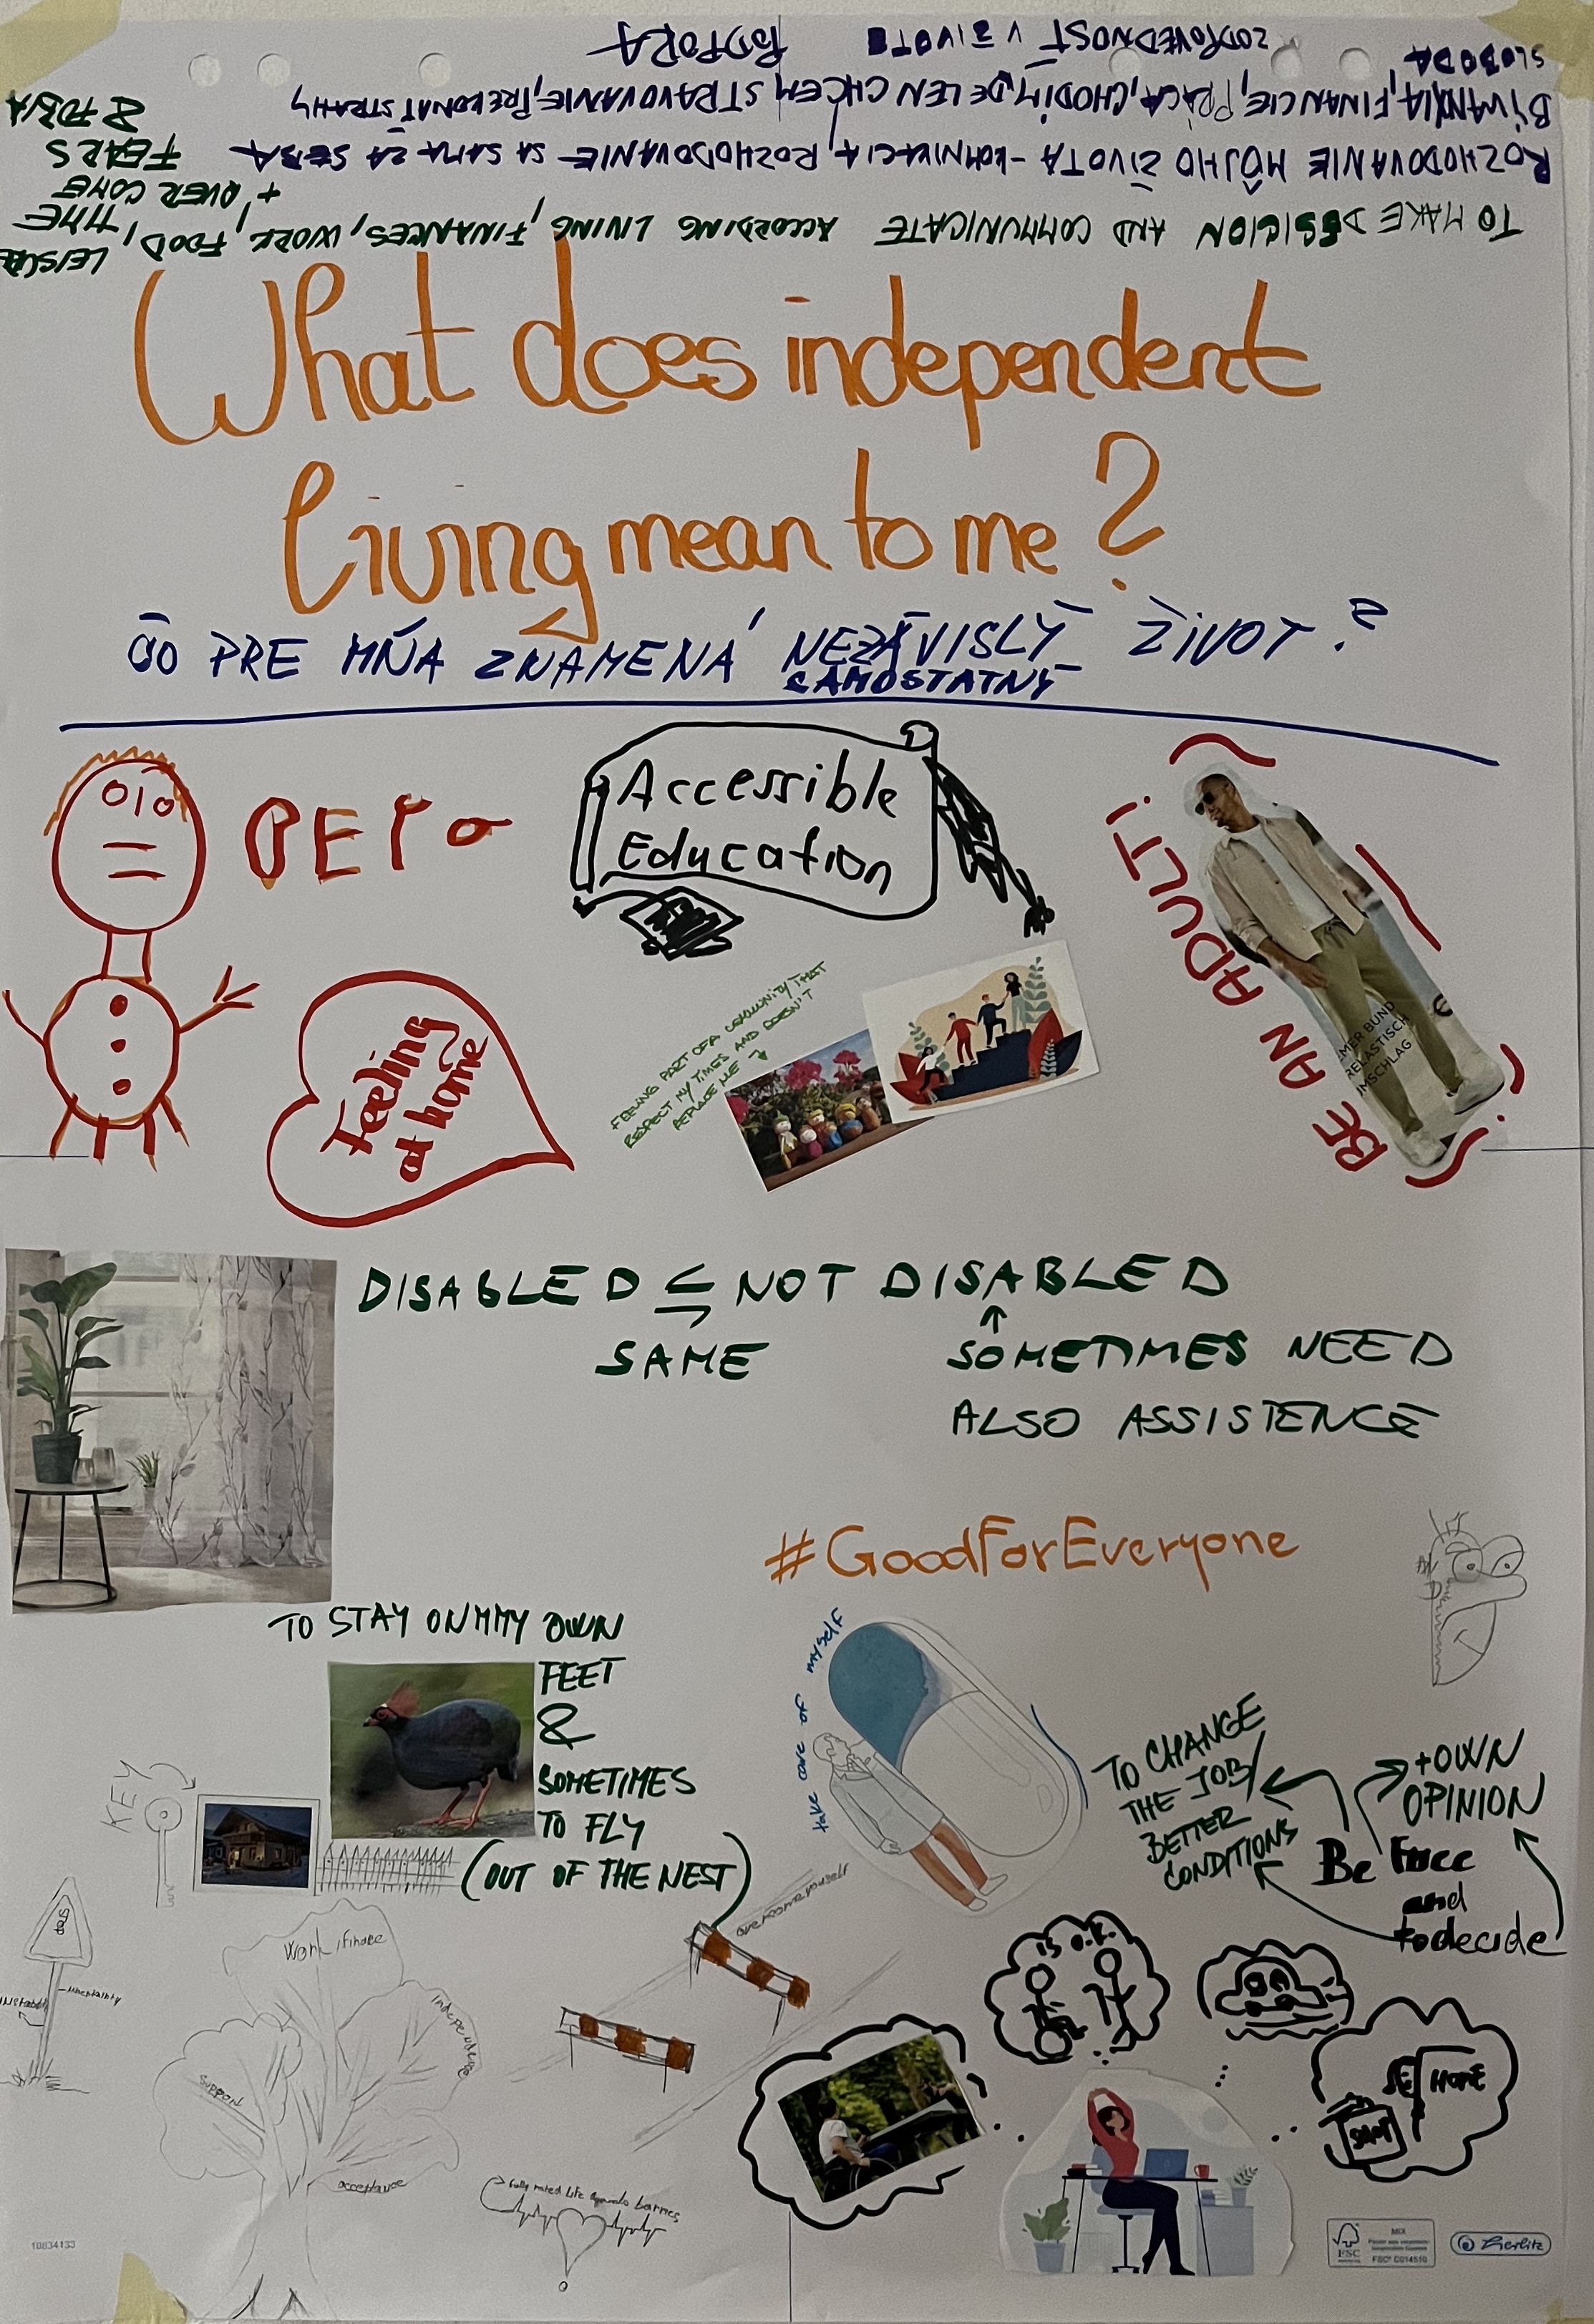 SLOBODA
ZODPOVEDNOSŤ V ŽIVOTE
PODPORA
BÝVANIA, FINANCIE, PRÁCA, CHODIŤ, DE LEN CHCEM STRAVOVANIE, PREKONAŤ STRAHY
ROZHODOVANIE MÔJHO ŽIVOTA - KOMNIKACIA ROZHODOVANIE SA SAMA ZA SEBA
TO MAKE DESICION AND COMMUNICATE ACCORDING LIVING, FINANCES, WORK, FOOD,
LEISURE
TIME
+ OVER COME
FEARS
& FOBIA
What does independent
living mean to me?
ČO PRE MŇA ZNAMENÁ NEZÁVISLÝ ŽIVOT?
SAMOSTATNÝ
Accessible
Education
BE AN ADULT!
MER BUND
RELASTISCH
MSCHLAG
€
Feeling
at home
FEELING PART OF A COMMUNITY THAT
RESPECT MY TIMES AND DOESN'T
REPLACE ME
DISABLED NOT DISABLED
SAME
SOMETIMES NEED
ALSO ASSISTENCE
#GoodForEveryone
TO STAY ON MMY OWN
FEET
&
SOMETIMES
TO FLY
(OUT OF THE NEST)
KEY
take care of myself
TO CHANGE
THE JOB/
BETTER
CONDITIONS
+OWN
OPINION
Be Free
and
to decide
overcome yourself
STOP
uncertainty
Work/finace
Independence
support
acceptance
IS O.K.
HOME
fully rated life
barries
10834133
FSC
MIX
FSC® C014510
Herlitz